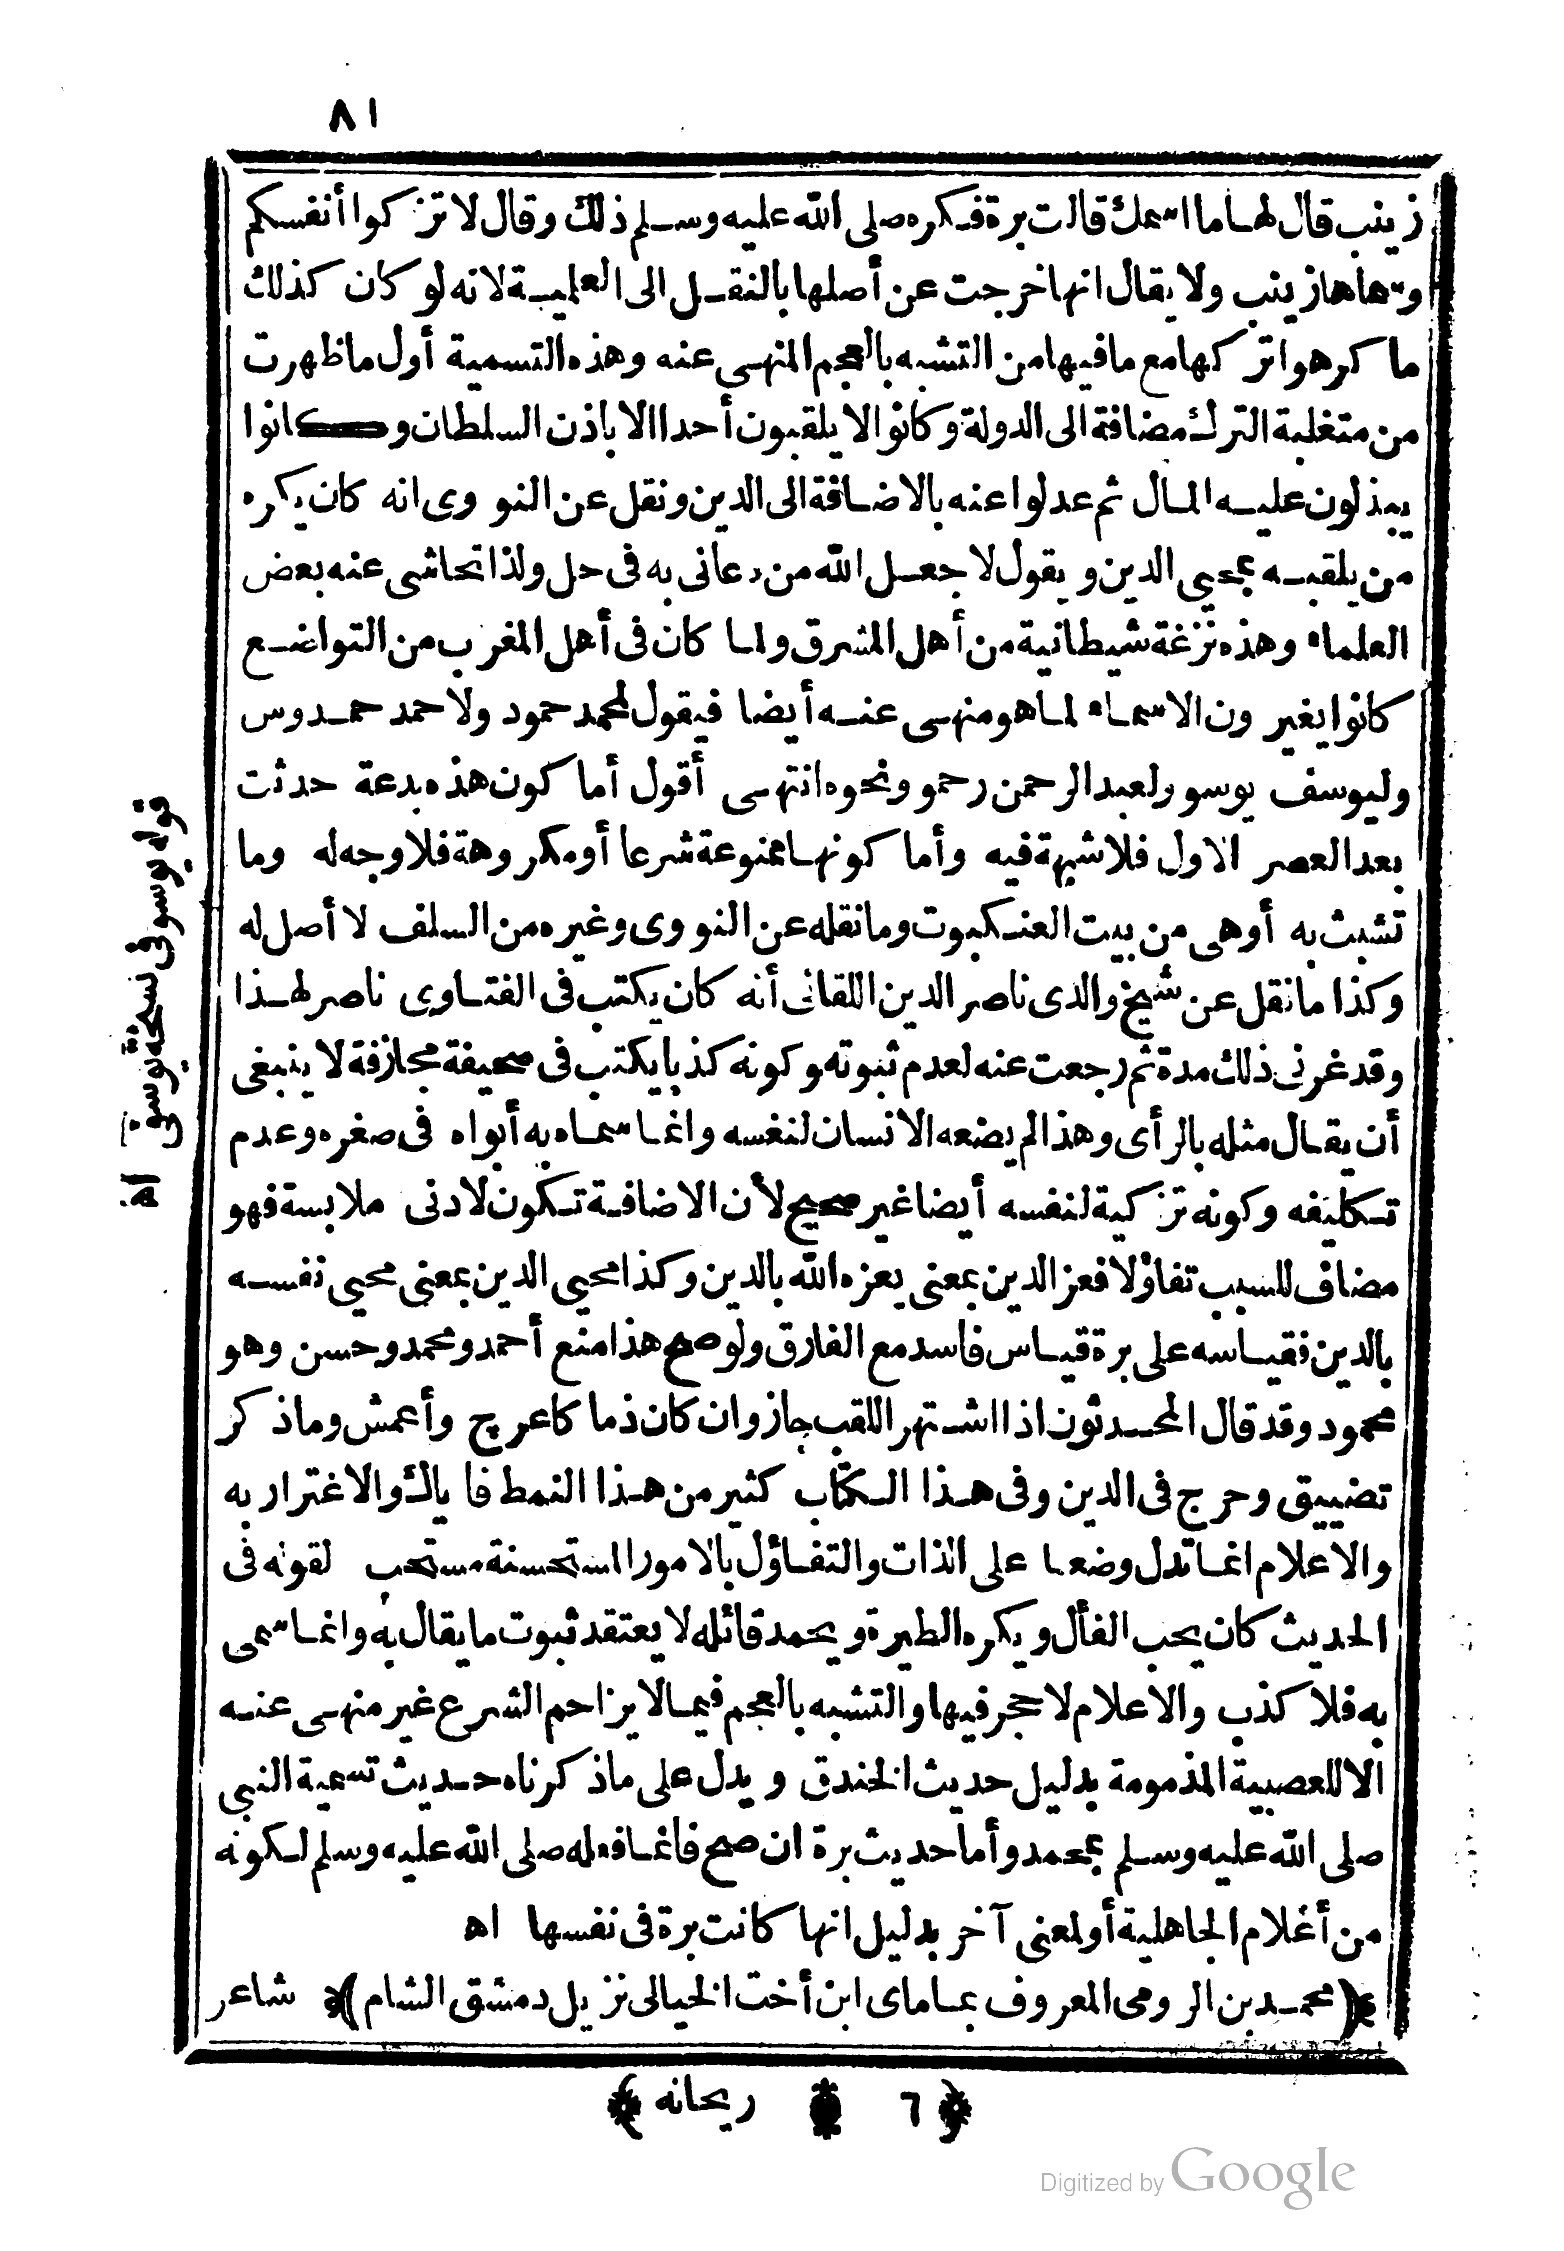 ٨١
زينب قال لها ما اسمك قالت برة فكره صلى الله عليه وسلم ذلك وقال لا تزكوا أنفسكم
وسماها زينب ولا يقال انها خرجت عن أصلها بالنقل الى العلمية لانه لو كان كذلك
ما كرهوا تركها مع ما فيها من التشبه بالعجم المنهى عنه وهذه التسمية أول ما ظهرت
من متغلبة الترك مضافة الى الدولة وكانوا لا يلقبون أحدا الا باذن السلطان وكانوا
يبذلون عليه المال ثم عدلوا عنه بالاضافة الى الدين ونقل عن النووى انه كان يكره
من يلقبه بمحيي الدين ويقول لا جعل الله من دعانى به فى حل ولذا تحاشى عنه بعض
العلماء وهذه نزغة شيطانية من أهل المشرق ولما كان فى أهل المغرب من التواضع
كانوا يغيرون الاسماء لما هو منهى عنه أيضا فيقول لمحمد حمود ولاحمد حمدوس
وليوسف يوسو ولعبد الرحمن رحمو ونحوه انتهى أقول أما كون هذه بدعة حدثت
بعد العصر الاول فلا شبهة فيه وأما كونها ممنوعة شرعا أو مكروهة فلا وجه له وما
تشبث به أوهى من بيت العنكبوت وما نقله عن النووى وغيره من السلف لا أصل له
وكذا ما نقل عن شيخ والدى ناصر الدين اللقانى أنه كان يكتب فى الفتاوى ناصر لهذا
وقد غرنى ذلك مدة ثم رجعت عنه لعدم ثبوته وكونه كذبا يكتب فى صحيفة مجازفة لا ينبغى
أن يقال مثله بالرأى وهذا لم يضعه الانسان لنفسه وانما سماه به أبواه فى صغره وعدم
تكليفه وكونه تزكية لنفسه أيضا غير صحيح لأن الاضافة تكون لادنى ملابسة فهو
مضاف للسبب تفاؤلا فعز الدين بمعنى يعزه الله بالدين وكذا محيي الدين بمعنى محيي نفسه
بالدين فقياسه على برة قياس فاسد مع الفارق ولو صح هذا منع أحمد ومحمد وحسن وهو
محمود وقد قال المحدثون اذا اشتهر اللقب جاز وان كان ذما كاعرج وأعمش وما ذكر
تضييق وحرج فى الدين وفى هذا الكتاب كثير من هذا النمط فاياك والاغترار به
والاعلام انما تدل وضعا على الذات والتفاؤل بالامور المستحسنة مستحب لقوله فى
الحديث كان يحب الفأل ويكره الطيرة ويحمد قائله لا يعتقد ثبوت ما يقال به وانما سمى
به فلا كذب والاعلام لا حجر فيها والتشبه بالعجم فيما لا يزاحم الشرع غير منهى عنه
الا للعصبية المذمومة بدليل حديث الخندق ويدل على ما ذكرناه حديث تسمية النبي
صلى الله عليه وسلم بمحمد وأما حديث برة ان صح فانما فعله صلى الله عليه وسلم لكونه
من أعلام الجاهلية أو لمعنى آخر بدليل انها كانت برة فى نفسها اه
﴿محمد بن الرومى المعروف بماماى ابن أخت الخيالى نزيل دمشق الشام﴾ شاعر
قوله يوسو فى نسخة يوسق اه
﴿ ٦ ريحانه ﴾
Digitized by Google